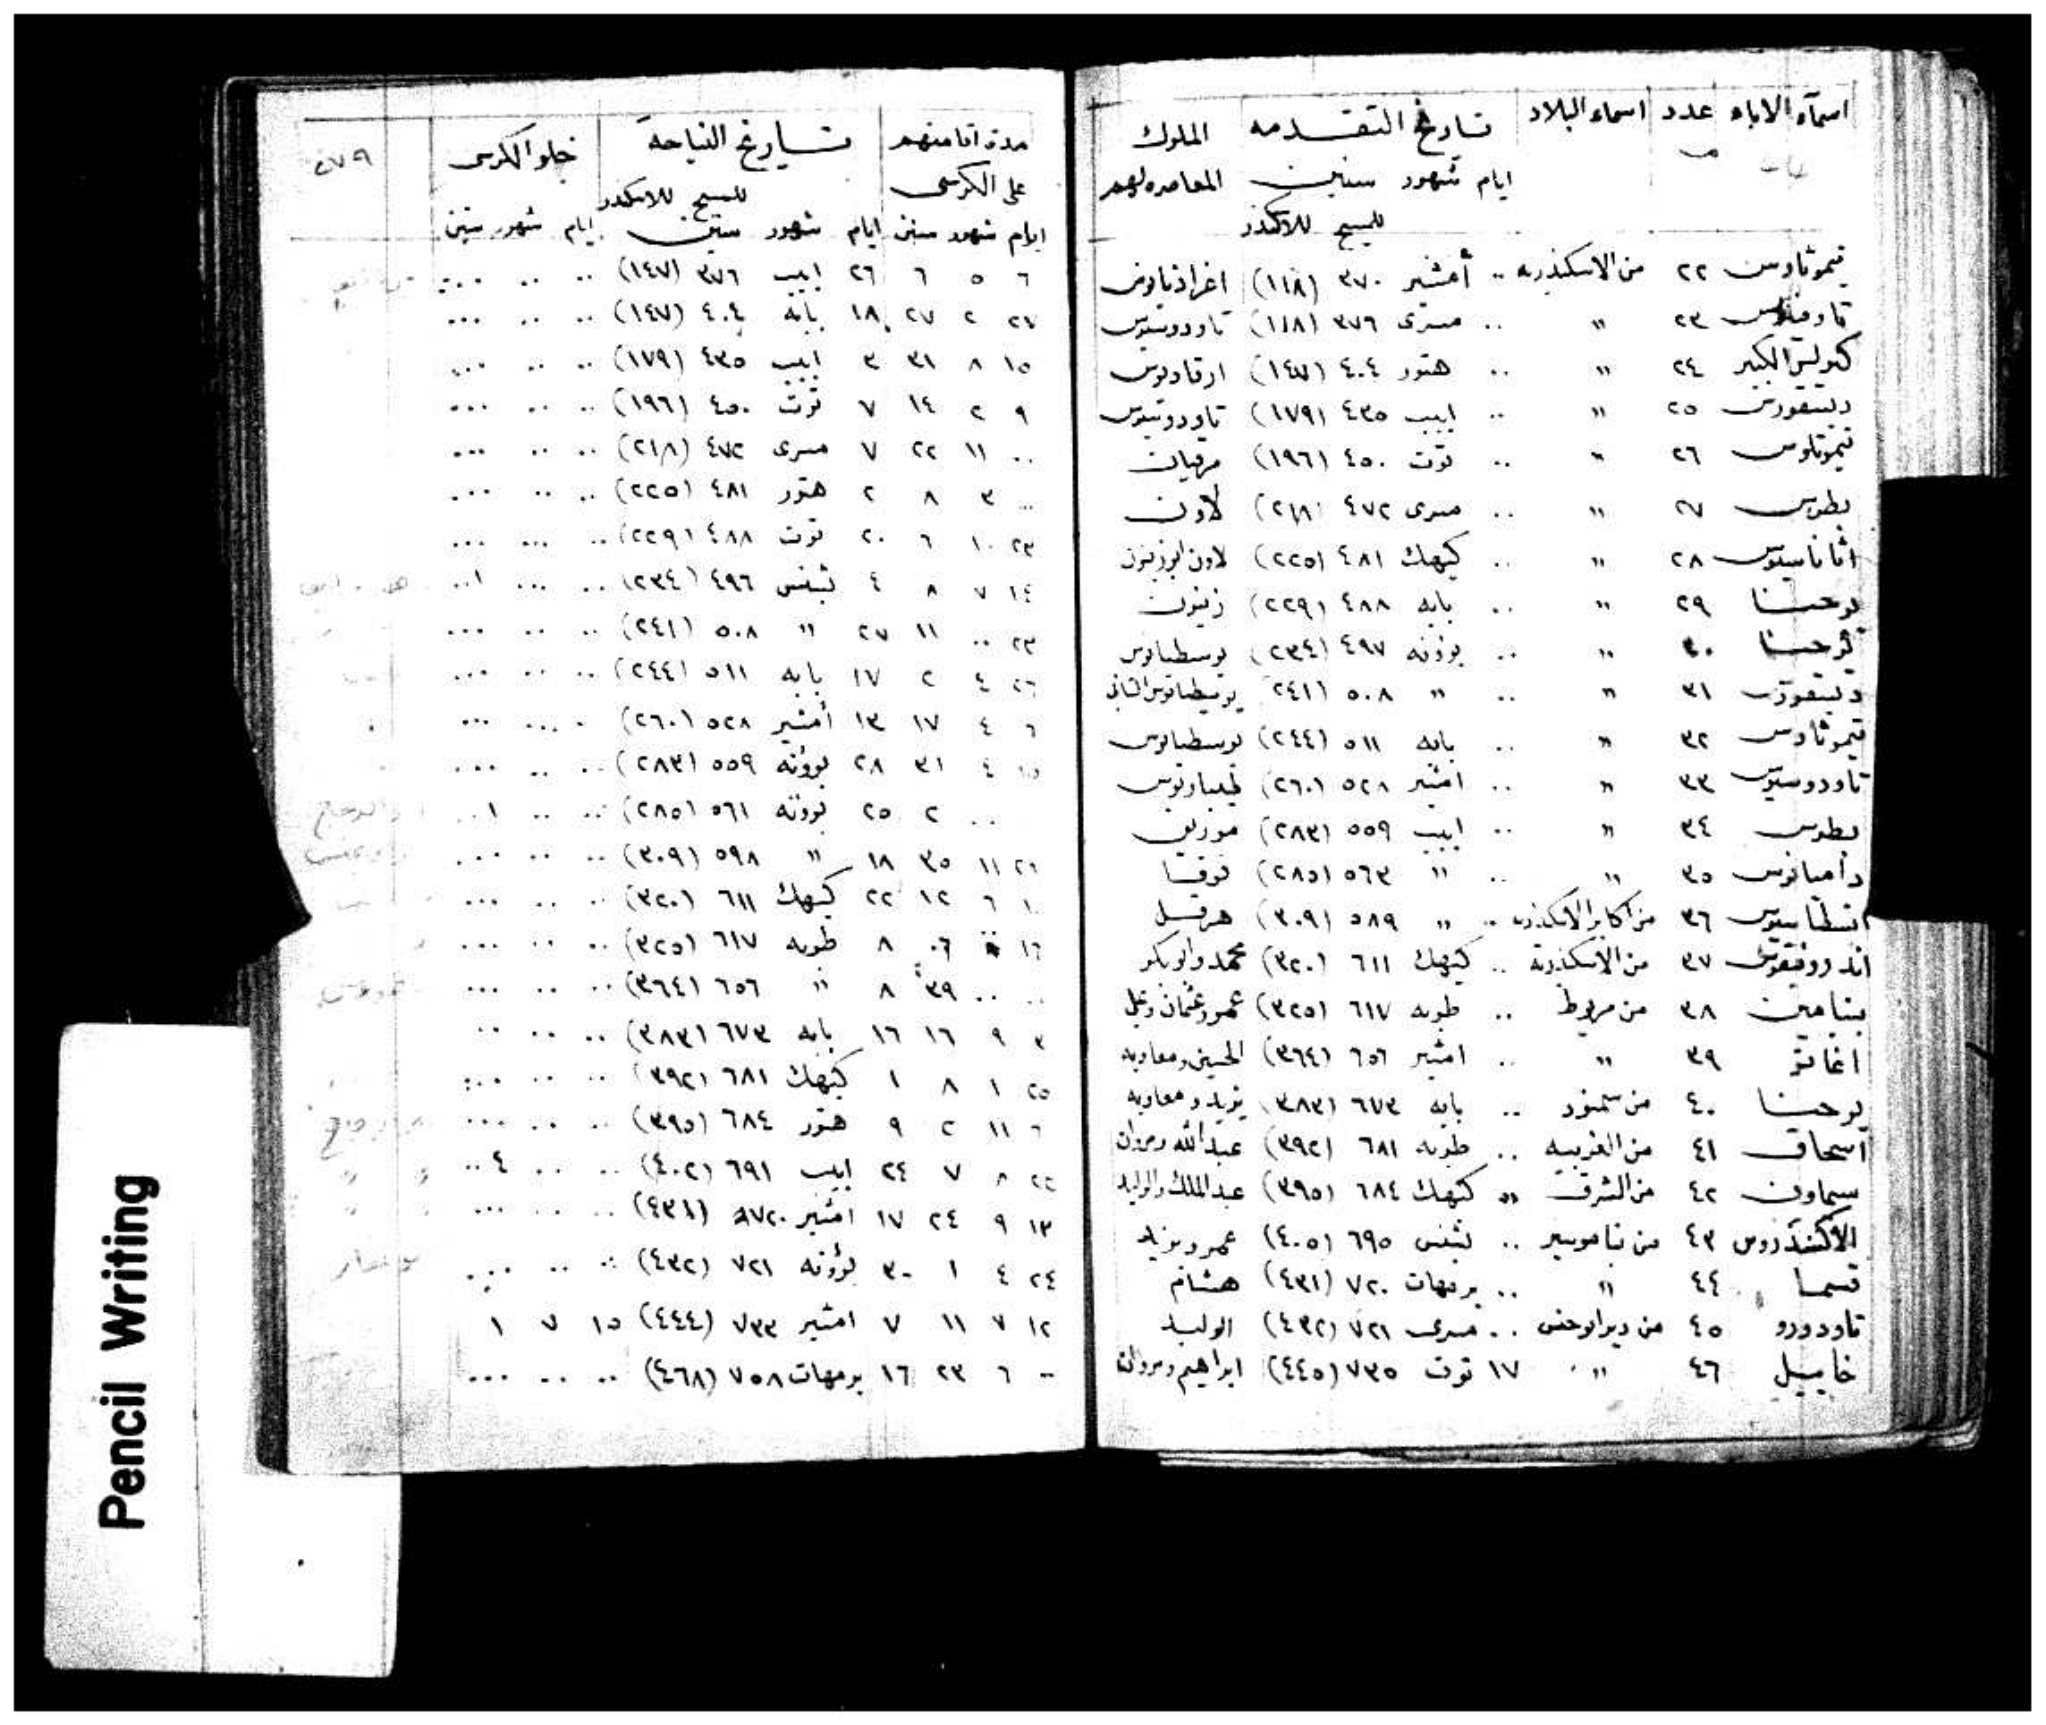 اسماء الاباء عدد اسماء البلاد تاريخ التقدمه الملوك
ايام شهور سنين المعاصره لهم
للمسيح للاسكندر
تيموثاوس ٢٢ من الاسكندريه .. أمشير ٣٧٠ (١١٨) اغراديانوس
تاوفيلس ٢٣ " .. مسرى ٣٧٦ (١١٨) تاودوسيوس
كيرلس الكبير ٢٤ " .. هتور ٤٠٤ (١٤٧) ارقاديوس
ديسقورس ٢٥ " .. ابيب ٤٣٥ (١٧٩) تاودوسيوس
تيموتاوس ٢٦ " .. توت ٤٥٠ (١٩٦) مرقيان
بطرس ٢٧ " .. مسرى ٤٧٢ (٢١٨) لاون
اثاناسيوس ٢٨ " .. كيهك ٤٨١ (٢٢٥) لاون ابو زينون
يوحنا ٢٩ " .. بابه ٤٨٨ (٢٢٩) زينون
يوحنا ٣٠ " .. بؤونه ٤٩٧ (٢٣٤) يوسطيانوس
ديسقورس ٣١ " .. " ٥٠٨ (٢٤١) يوسيطيانوس الثانى
تيموثاوس ٣٢ " .. بابه ٥١١ (٢٤٤) يوسطيانوس
تاودوسيوس ٣٣ " .. امشير ٥٢٨ (٢٦٠) طيباريوس
بطرس ٣٤ " .. ابيب ٥٥٩ (٢٨٣) موريق
داميانوس ٣٥ " .. " ٥٦٣ (٢٨٥) فوقا
انسطاسيوس ٣٦ من اكابر الاسكندريه .. " ٥٨٩ (٣٠٩) هرقل
اندرونيقوس ٣٧ من الاسكندرية .. كيهك ٦١١ (٣٢٠) محمد وابو بكر
بنيامين ٣٨ من مريوط .. طوبه ٦١٧ (٣٢٥) عمر وعثمان وعلى
اغاتو ٣٩ " .. امشير ٦٥٦ (٣٦٤) الحسين ومعاويه
يوحنا ٤٠ من سمنود .. بابه ٦٧٣ (٣٨٣) يزيد ومعاويه
اسحاق ٤١ من الغربيه .. طوبه ٦٨١ (٣٩٢) عبد الله ومروان
سيماون ٤٢ من الشرق .. كيهك ٦٨٤ (٣٩٥) عبد الملك والوليد
الاكسندروس ٤٣ من بناموسير .. بشنس ٦٩٥ (٤٠٥) عمر ويزيد
قسما ٤٤ " .. برمهات ٧٢٠ (٤٣١) هشام
تاودورو ٤٥ من دير ابو حنس .. مسرى ٧٢١ (٤٣٢) الوليد
خاييل ٤٦ " ١٧ توت ٧٣٥ (٤٤٥) ابراهيم ومروان
مدة اقامتهم تاريخ النياحة خلو الكرسى ٥٧٩
على الكرسى للمسيح للاسكندر
ايام شهور سنين ايام شهور سنين ايام شهور سنين
٦ ٥ ٦ ٢٦ ابيب ٣٧٦ (١٤٧) .. .. ...
٢٧ ٢ ٢٧ ١٨ بابه ٤٠٤ (١٤٧) .. .. ...
١٥ ٨ ٣١ ٣ ابيب ٤٣٥ (١٧٩) .. .. ...
٩ ٢ ١٤ ٧ توت ٤٥٠ (١٩٦) .. .. ...
.. ١١ ٢٢ ٧ مسرى ٤٧٢ (٢١٨) .. .. ...
... ٣ ٨ ٢ هتور ٤٨١ (٢٢٥) .. .. ...
٢٣ ١٠ ٦ ٢٠ توت ٤٨٨ (٢٢٩) .. ... ...
١٤ ٧ ٨ ٤ بشنس ٤٩٦ (٢٣٤) .. ... ١..
٢٣ .. ١١ ٢٧ " ٥٠٨ (٢٤١) .. .. ...
٢٦ ٤ ٢ ١٧ بابه ٥١١ (٢٤٤) .. .. ...
٦ ٤ ١٧ ١٣ أمشير ٥٢٨ (٢٦٠) . ... ...
١٥ ٤ ٣١ ٢٨ بؤونه ٥٥٩ (٢٨٣) .. .. ...
.. ٢ ٢٥ بؤونه ٥٦١ (٢٨٥) .. .. ١..
٢٦ ١١ ٣٥ ١٨ " ٥٩٨ (٣٠٩) .. .. ...
١٠ ٦ ١٢ ٢٢ كيهك ٦١١ (٣٢٠) .. .. ...
١٦ ٠٦ ٨ طوبه ٦١٧ (٣٢٥) .. .. ...
.. .. ٣٩ ٨ " ٦٥٦ (٣٦٤) .. .. ...
٣ ٩ ١٦ ١٦ بابه ٦٧٣ (٣٨٣) .. .. ..
٢٥ ١ ٨ ١ كيهك ٦٨١ (٣٩٢) .. .. ...
٦ ١١ ٢ ٩ هتور ٦٨٤ (٣٩٥) .. .. ...
٢٢ ٨ ٧ ٢٤ ابيب ٦٩١ (٤٠٢) .. .. ٤..
١٣ ٩ ٢٤ ١٧ امشير ٧٢٠ (٤٣١) .. .. ...
٢٤ ٤ ١ ٣٠ بؤونه ٧٢١ (٤٣٢) .. .. ...
١٢ ٧ ١١ ٧ امشير ٧٣٣ (٤٤٤) ١٥ ٧ ١
.. ٦ ٢٣ ١٦ برمهات ٧٥٨ (٤٦٨) .. .. ...
Pencil Writing